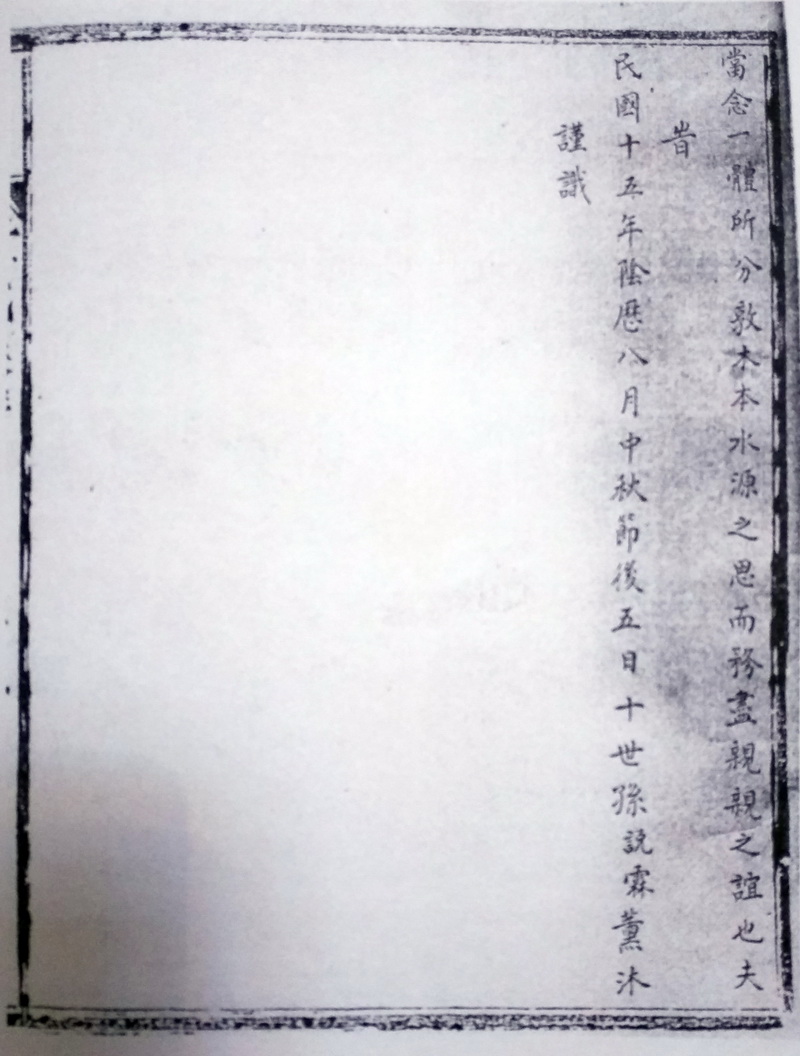 當念一體所分敦木本水源之思而務盡親親之誼也夫
旹
民國十五年陰歷八月中秋節後五日十世孫說霖薰沐
謹識